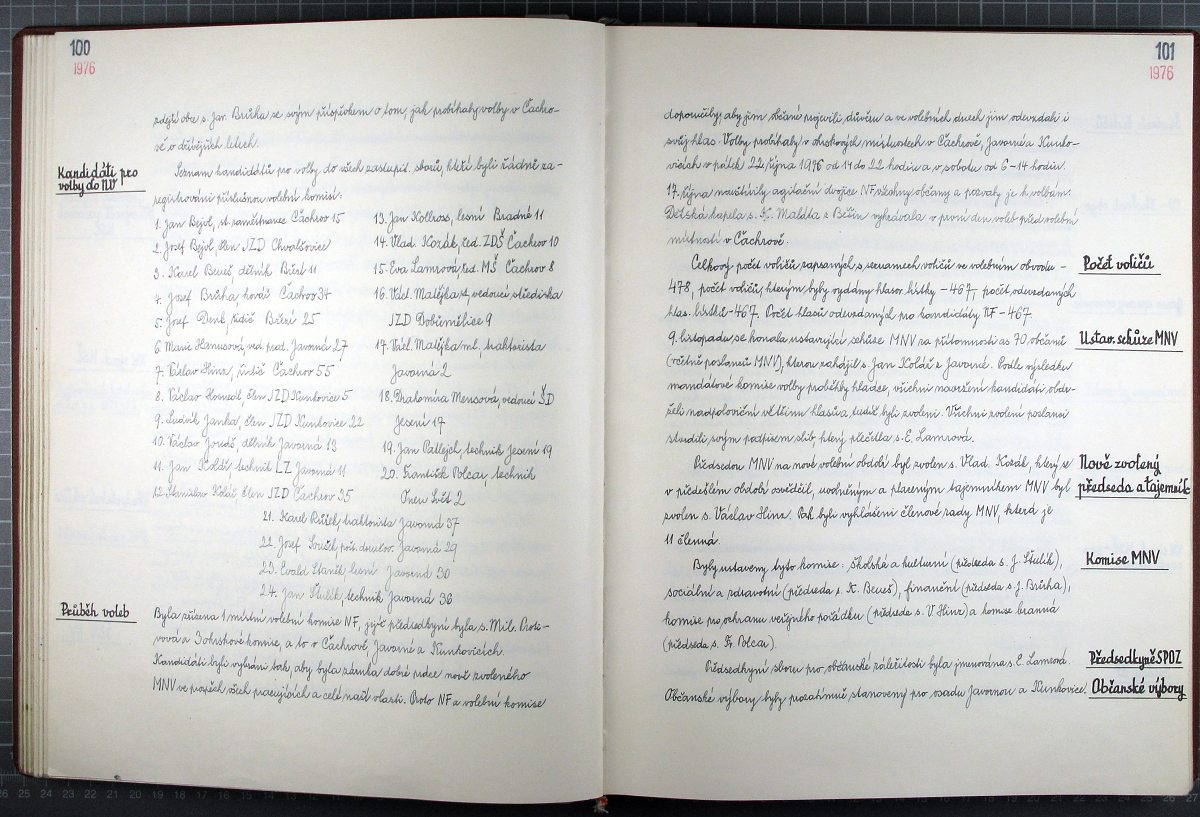 100
1976
zdejší obce s. Jar. Brůha se svým příspěvkem o tom, jak probíhaly volby v Čachro-
vě v dřívějších letech.
Kandidáti pro
volby do NV
Seznam kandidátů pro volby do všech zastupit. sborů, kteří byli řádně za-
registrováni příslušnou volební komisí:
1. Jan Bejvl, st. zaměstnanec Čachrov 15
2. Josef Bejvl, člen JZD Chvalšovice
3. Karel Beneš dělník Bíží 11
4. Josef Brůha kovář Čachrov 34
5. Josef Denk, řidič Bíží 25
6. Marie Hanusová, ved. prod. Javorná 27
7. Václav Hinz, řidič Čachrov 55
8. Václav Hosnedl, člen JZD Kunkovice 5
9. Ludvík Janka, člen JZD Kunkovice 22
10. Václav Joudš, dělník Javorná 13
11. Jan Kolář technik LZ Javorná 11
12. Stanislav Kolář člen JZD Čachrov 35
13. Jan Kollross, lesní Bradné 11
14. Vlad. Kozák, řed. ZDŠ Čachrov 10
15. Eva Lamzová, řed. MŠ Čachrov 8
16. Václ. Matějka st., vedoucí střediska
JZD Dobřemělice 9
17. Václ. Matějka ml., traktorista
Javorná 2
18. Drahomíra Mensová, vedoucí ŠD
Jesení 17
19. Jan Patlejch, technik Jesení 19
20. František Polcar, technik
Onen Svět 2
21. Karel Růžek, traktorista Javorná 37
22. Josef Soušek, pošt. doručov. Javorná 29
23. Evald Staněk, lesní Javorná 30
24. Jan Štulík, technik Javorná 36
Průběh voleb
Byla zřízena 1 místní volební komise NF, jejíž předsedkyní byla s. Mil. Proti-
vová a 3 okrskové komise, a to v Čachrově, Javorné a Kunkovicích
Kandidáti byli vybráni tak, aby byla záruka dobré práce nově zvoleného
MNV ve prospěch všech pracujících a celé naší vlasti. Proto NF a volební komise
101
1976
doporučily, aby jim občané projevili důvěru a ve volebních dnech jim odevzdali i
svůj hlas. Volby probíhaly v okrskových místnostech v Čachrově, Javorné a Kunko-
vicích v pátek 22. října 1976 od 14 do 22 hodin a v sobotu od 6-14 hodin.
17. října navštívily agitační dvojice NF všechny občany a pozvaly je k volbám.
Dětská kapela s. K. Maldta z Běšin vyhrávala v první den voleb před volební
místností v Čachrově.
Počet voličů
Celkový počet voličů zapsaných v seznamech voličů ve volebním obvodu -
478, počet voličů, kterým byly vydány hlasov. lístky - 467, počet odevzdaných
hlas. lístků - 467. Počet hlasů odevzdaných pro kandidáty NF - 467.
Ustav. schůze MNV
9. listopadu se konala ustavující schůze MNV za přítomnosti as 70 občanů
(včetně poslanců MNV), kterou zahájil s. Jan Kolář z Javorné. Podle výsledku
mandátové komise volby proběhly hladce, všichni navržení kandidáti obdr-
želi nadpoloviční většinu hlasů a tudíž byli zvoleni. Všichni zvolení poslanci
stvrdili svým podpisem slib, který přečetla s. E. Lamzová.
Nově zvolený
předseda a tajemník
Předsedou MNV na nové volební období byl zvolen s. Vlad. Kozák, který se
v předešlém období osvědčil, uvolněným a placeným tajemníkem MNV byl
zvolen s. Václav Hinz. Pak byli vyhlášeni členové rady MNV, která je
11 členná.
Komise MNV
Byly ustaveny tyto komise: školská a kulturní (předseda s. J. Štulík),
sociální a zdravotní (předseda s. K. Beneš), finanční (předseda s. J. Brůha),
komise pro ochranu veřejného pořádku (předseda s. V. Hinz) a komise branná
(předseda s. Fr. Polcar).
Předsedkyně SPOZ
Předsedkyní sboru pro občanské záležitosti byla jmenována s. E. Lamzová.
Občanské výbory
Občanské výbory byly prozatímně stanoveny pro osadu Javornou a Kunkovice.